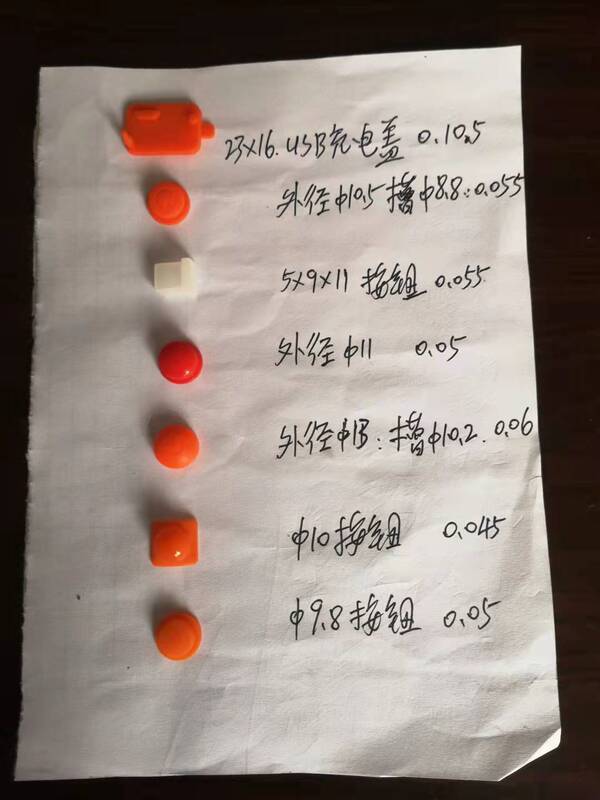 23×16.USB充电盖 0.10.5
外径φ10.5 槽φ8.8:0.055
5×9×11 按钮 0.055
外径φ11 0.05
外径φ13:槽φ10.2.0.06
φ10按钮 0.045
φ9.8按钮 0.05